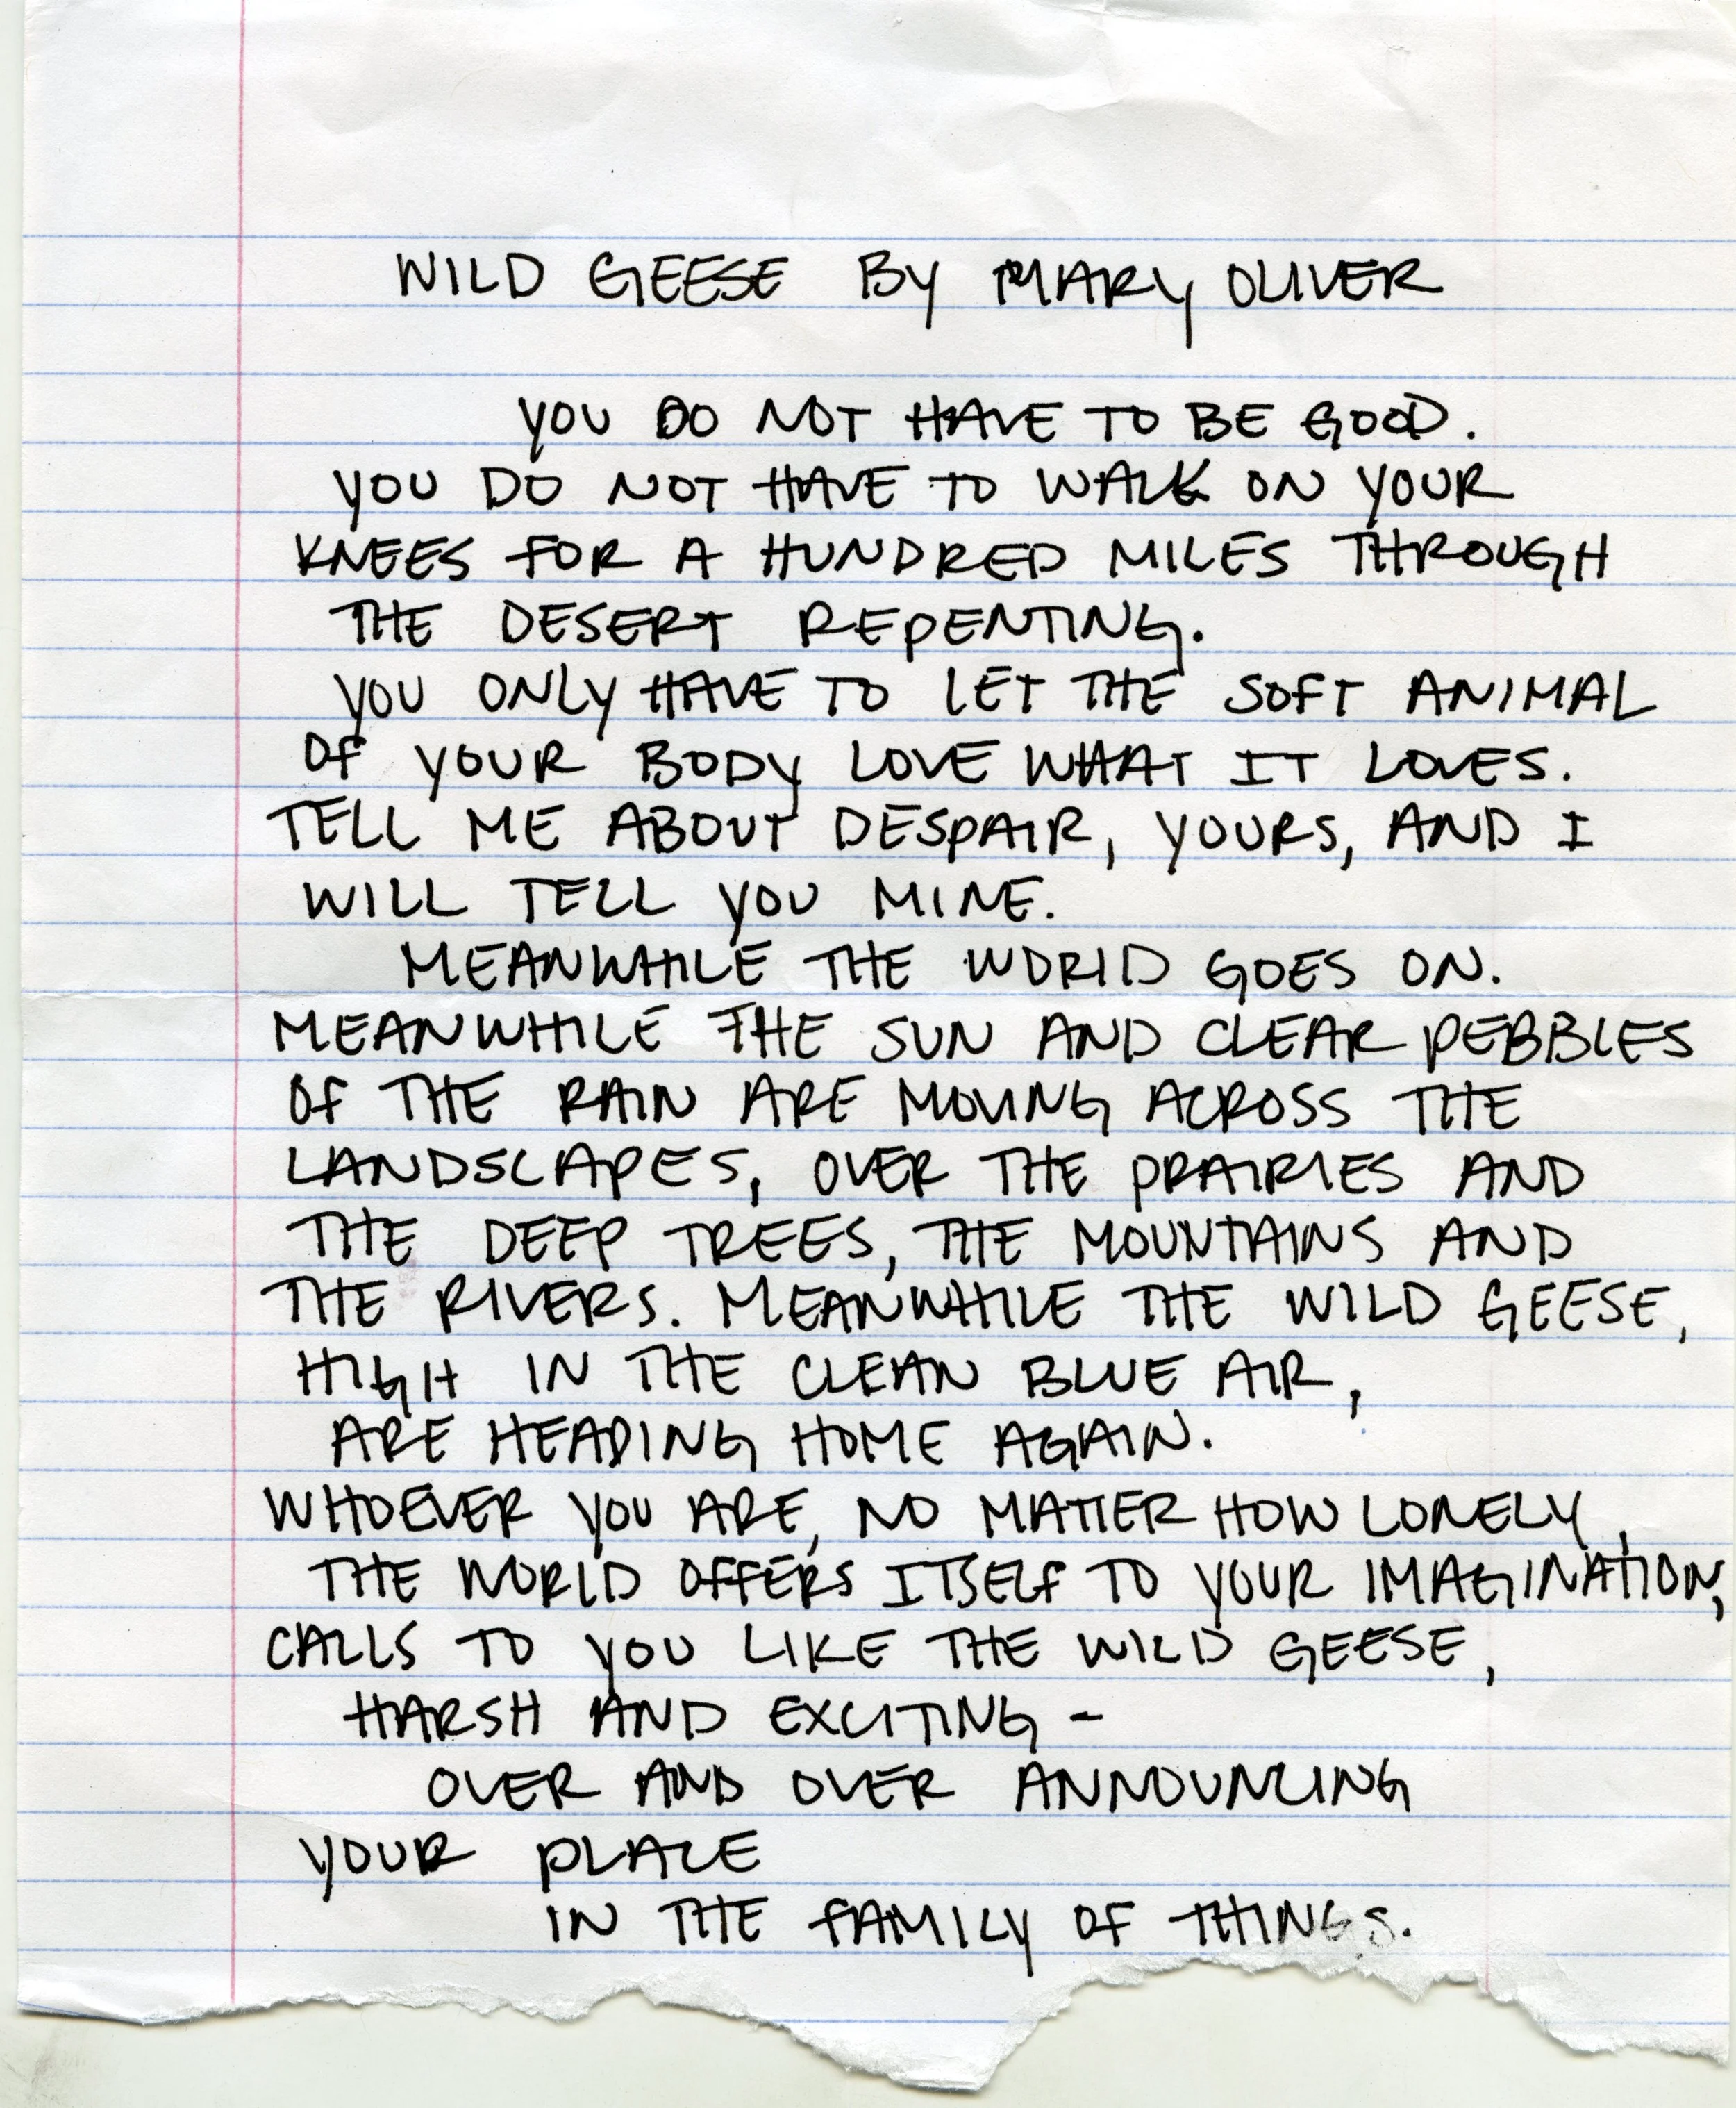 WILD GEESE BY MARY OLIVER
YOU DO NOT HAVE TO BE GOOD.
YOU DO NOT HAVE TO WALK ON YOUR
KNEES FOR A HUNDRED MILES THROUGH
THE DESERT REPENTING.
YOU ONLY HAVE TO LET THE SOFT ANIMAL
OF YOUR BODY LOVE WHAT IT LOVES.
TELL ME ABOUT DESPAIR, YOURS, AND I
WILL TELL YOU MINE.
MEANWHILE THE WORLD GOES ON.
MEANWHILE THE SUN AND CLEAR PEBBLES
OF THE RAIN ARE MOVING ACROSS THE
LANDSCAPES, OVER THE PRAIRIES AND
THE DEEP TREES, THE MOUNTAINS AND
THE RIVERS. MEANWHILE THE WILD GEESE,
HIGH IN THE CLEAN BLUE AIR,
ARE HEADING HOME AGAIN.
WHOEVER YOU ARE, NO MATTER HOW LONELY,
THE WORLD OFFERS ITSELF TO YOUR IMAGINATION,
CALLS TO YOU LIKE THE WILD GEESE,
HARSH AND EXCITING -
OVER AND OVER ANNOUNCING
YOUR PLACE
IN THE FAMILY OF THINGS.